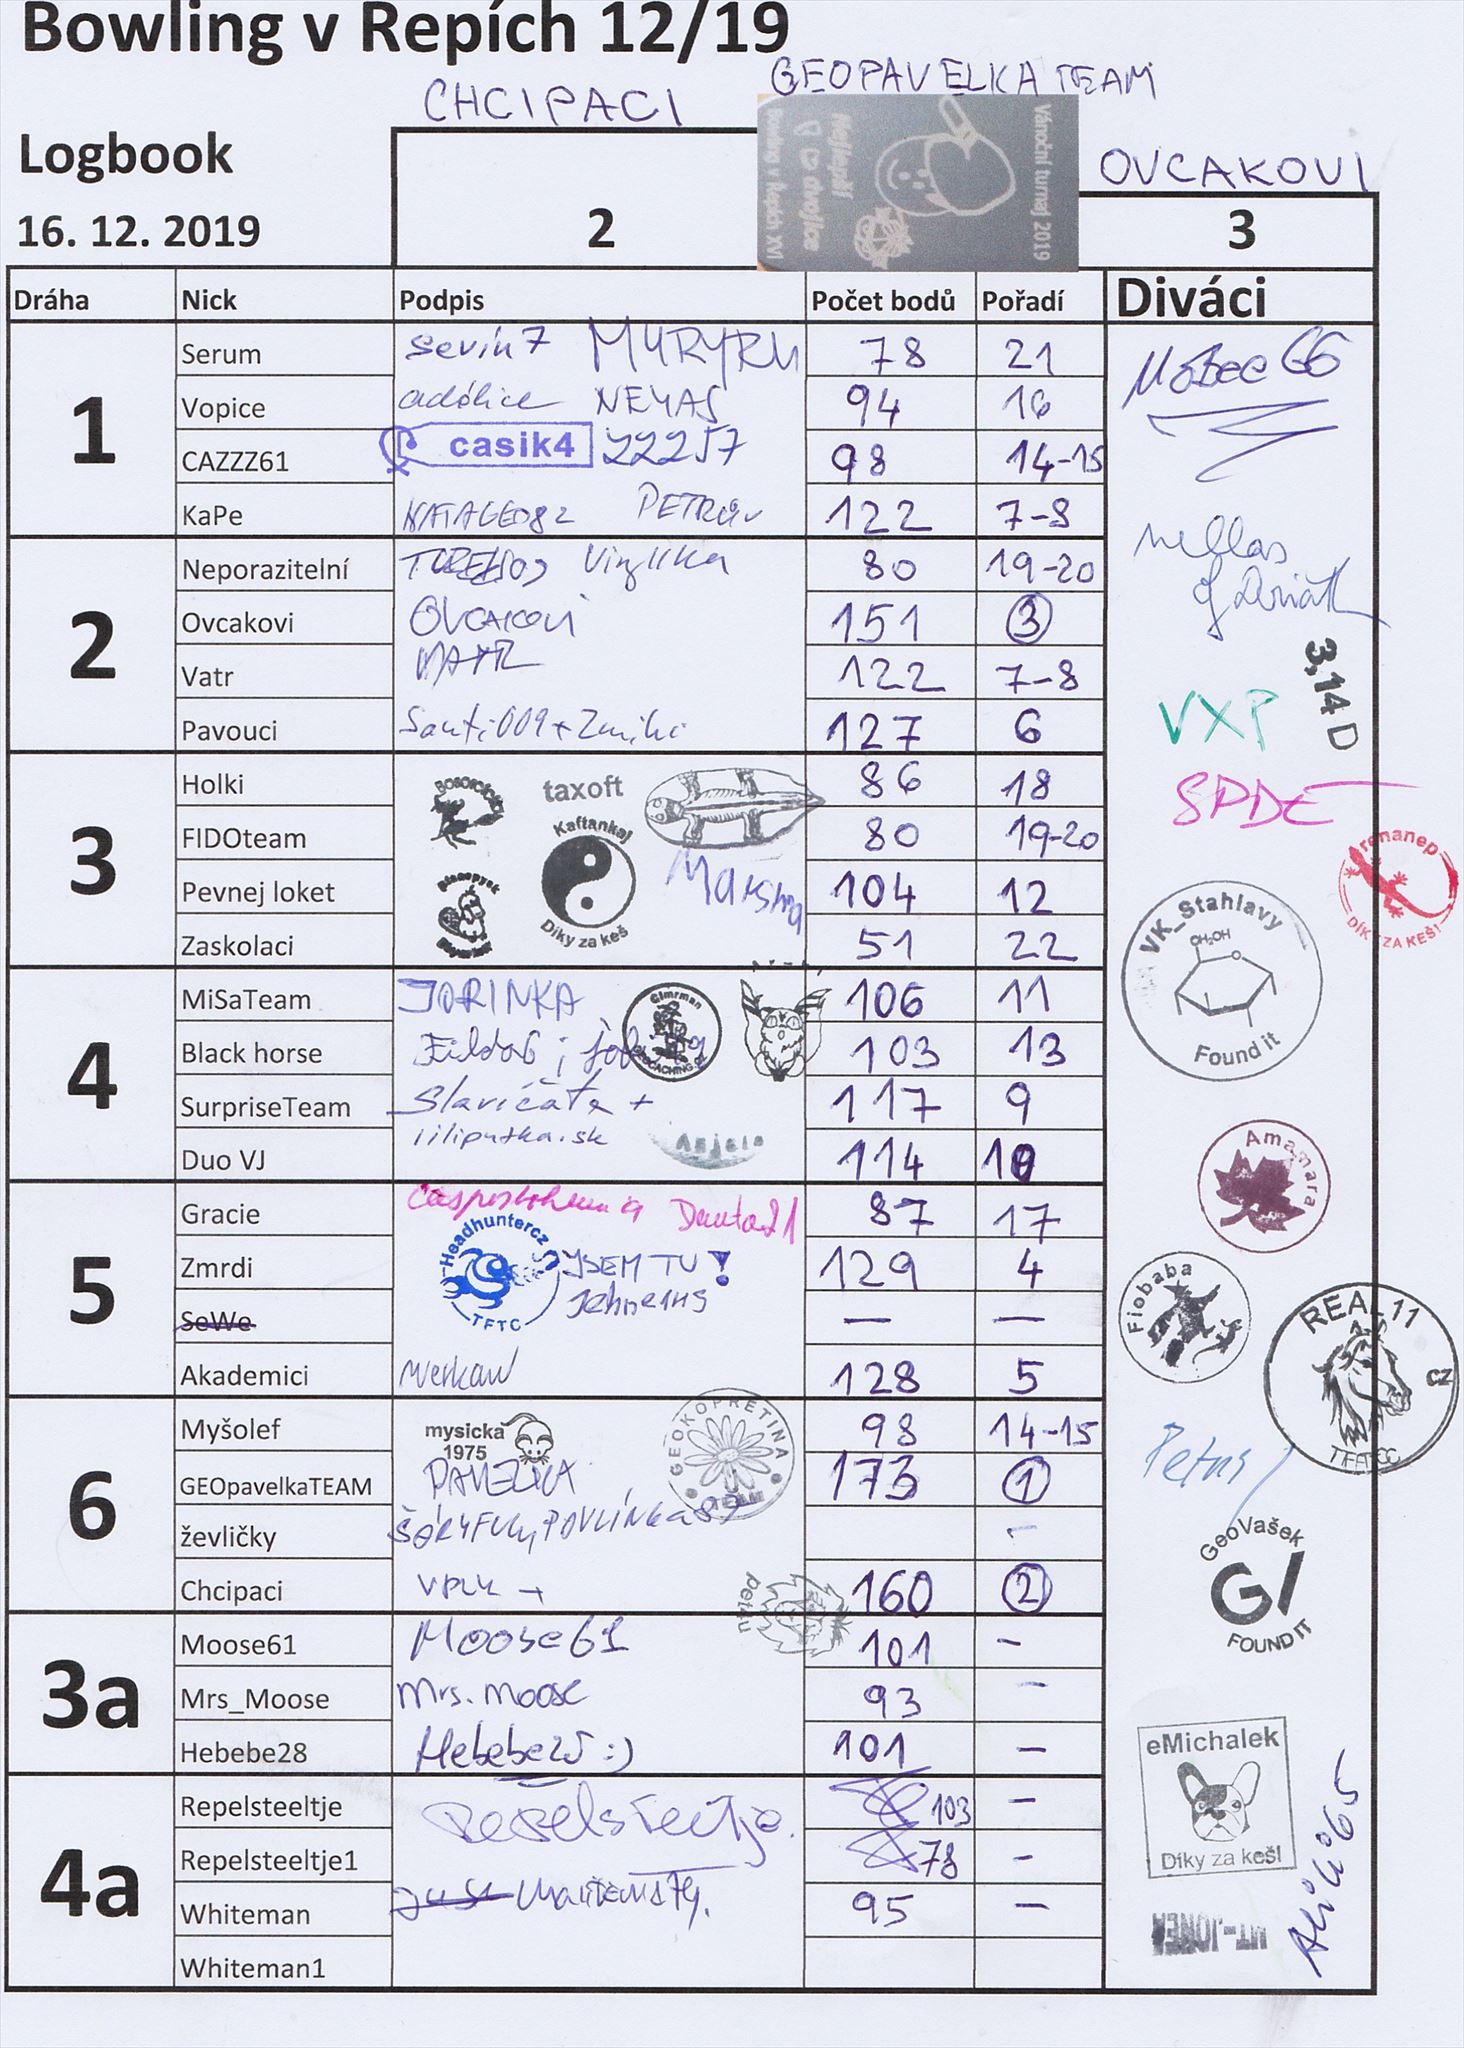 Bowling v Repích 12/19
CHCIPACI
GEOPAVELKA TEAM
OVCAKOVI
Vánoční turnaj 2019
Nejlepší
dvojice
Bowling v Řepích XVI
Logbook
16. 12. 2019
2
3
Dráha Nick Podpis Počet bodů Pořadí Diváci
1
Serum sevin7 MYRYRM 78 21
Vopice adélice NEYAS 94 16
CAZZZ61 casik4 22257 98 14-15
KaPe NATAGEO82 122 7-8
2
Neporazitelní 80 19-20
Ovcakovi OVCAKOVI 151 3
Vatr VATR 122 7-8
Pavouci 127 6
3
Holki taxoft 86 18
FIDOteam Kaftankaj Díky za keš 80 19-20
Pevnej loket 104 12
Zaskolaci 51 22
4
MiSaTeam JORINKA Cimrman GEOCACHING.CZ 106 11
Black horse 103 13
SurpriseTeam Slavíčata + 117 9
Duo VJ iiliputka.sk Anjela 114 10
5
Gracie 87 17
Zmrdi Headhuntercz TFTC JSEM TU! 129 4
SeWe — —
Akademici 128 5
6
Myšolef mysicka 1975 GEOKOPRETINA TEAM 98 14-15
GEOpavelkaTEAM PAVELKA 173 1
ževličky -
Chcipaci petau 160 2
3a
Moose61 Moose61 101 -
Mrs_Moose Mrs. Moose 93 -
Hebebe28 Hebebe28 :) 101 -
4a
Repelsteeltje Repelsteeltje. 103 -
Repelsteeltje1 78 -
Whiteman 95 -
Whiteman1
3,14 D
VXP
SPDE
renanep
DÍKY ZA KEŠ!
VK_Stahlavy
CH₂OH
O
Found it
Amamara
Fiobaba
REA_11
CZ
TFTC
GeoVašek
GV
FOUND IT
eMichalek
Díky za keš!